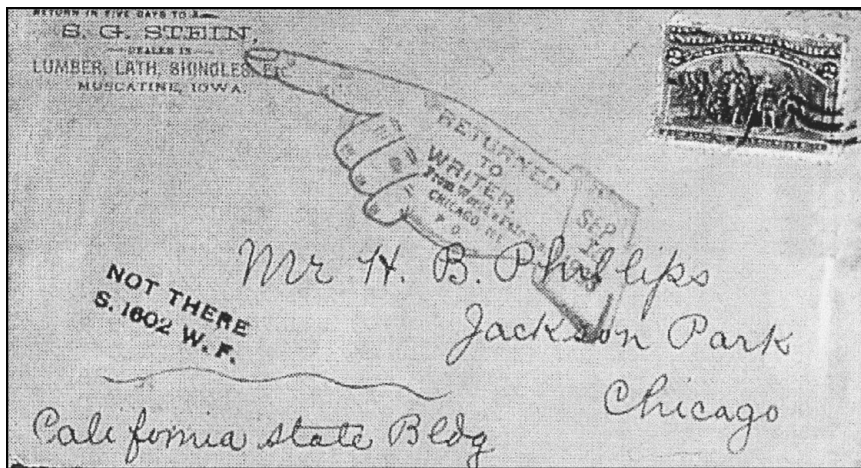 RETURN IN FIVE DAYS TO
S. G. STEIN,
DEALER IN
LUMBER, LATH, SHINGLES, Etc
MUSCATINE, IOWA.
RETURNED
TO
WRITER
From World's Fair Sta.
CHICAGO, ILL.
P. O.
SEP
1893
NOT THERE
S. 1602 W. F.
Mr H. B. Phillips
Jackson Park
Chicago
California state Bldg